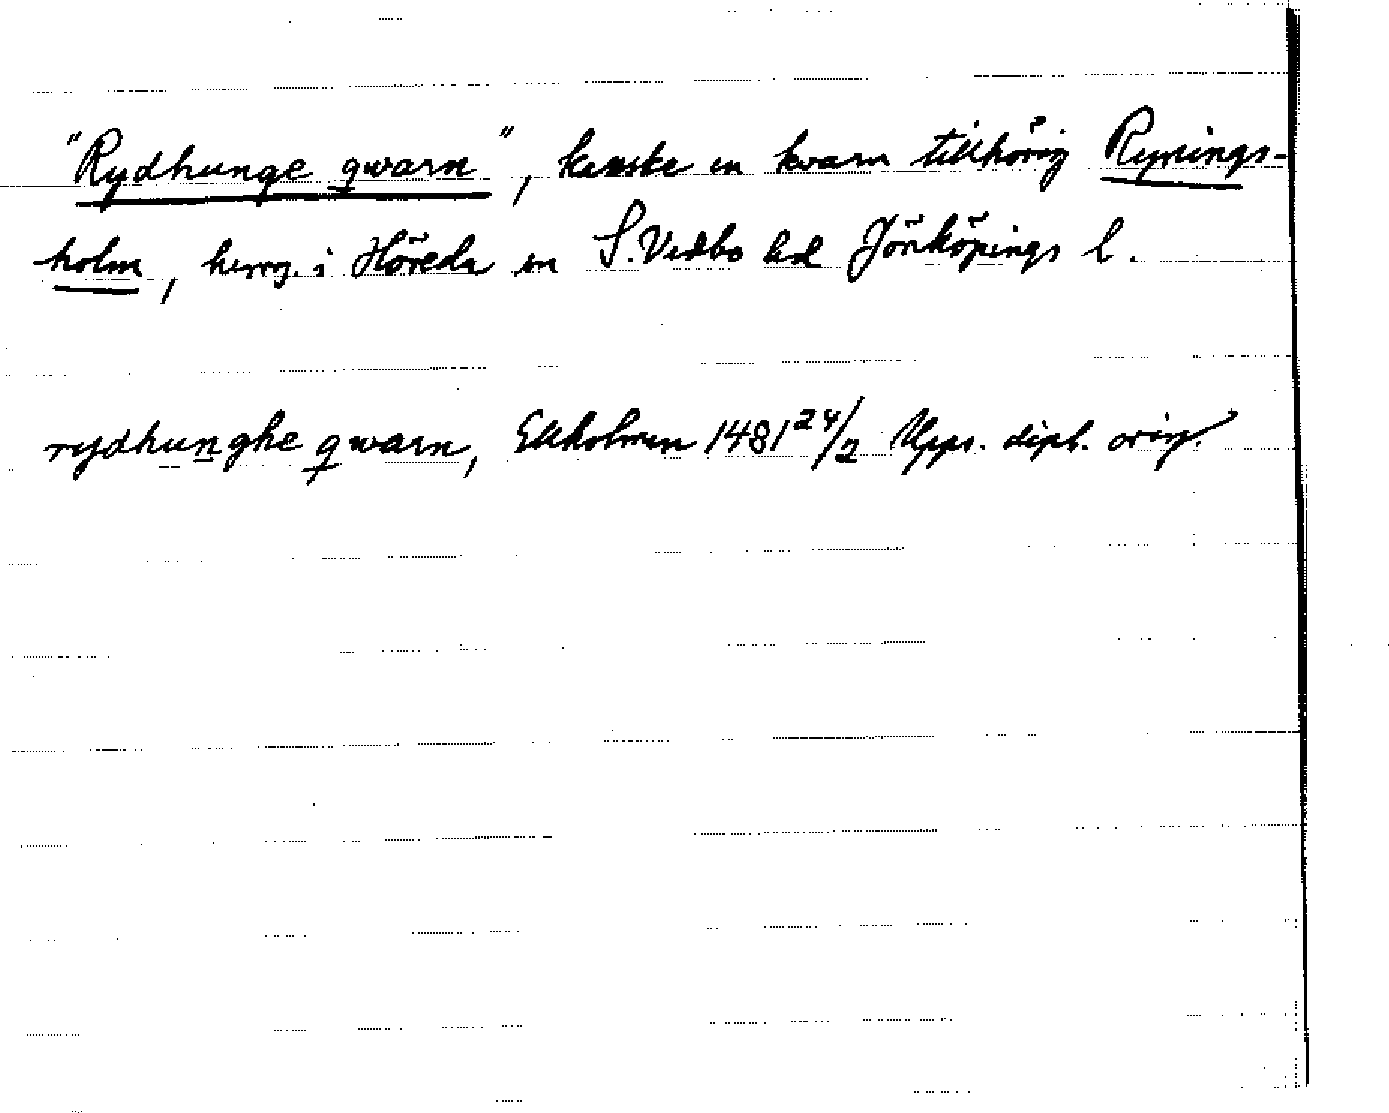 "Rydhunge qwarn", kanske en kvarn tillhörig Rynings-
holm, herrg. i Höreda sn S. Vedbo hd Jönköpings l.
rydhunghe qwarn, Ekholmen 1481 24/2 Upps. dipl. orig.